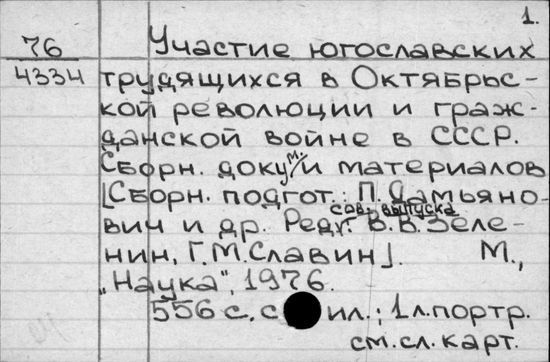 1.
76
4334
Участие югославских
трудящихся в Октябрьс-
кой революции и граж-
данской войне в СССР.
Сборн. докум. и материалов
[Сборн. подгот.: П. Дамьяно-
вич и др. Ред. сов. выпуска В. В. Зеле-
нин, Г. М. Славин]. М.,
„Наука", 1976.
556 с. с ил.; 1 л. портр.
см. сл. карт.